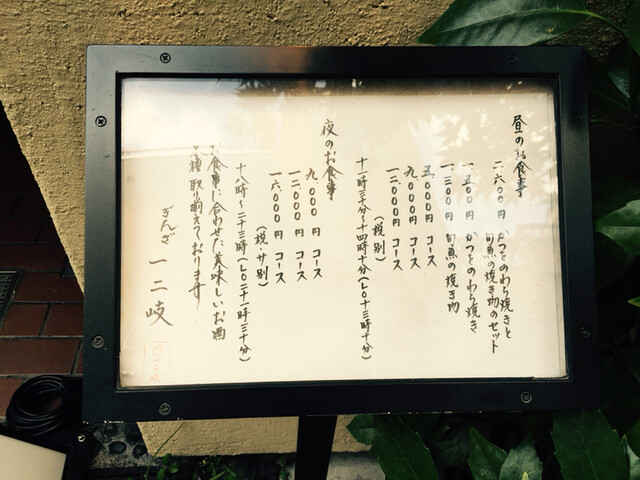 昼のお食事
二.六〇〇円 かつをのわら焼きと
旬魚の焼き物のセット
一.五〇〇円 かつをのわら焼き
一.三〇〇円 旬魚の焼き物
五.〇〇〇円 コース
九.〇〇〇円 コース
一二.〇〇〇円 コース
(税別)
十一時三十分〜十四時十分(L.O十三時十分)
夜のお食事
九.〇〇〇円 コース
一二.〇〇〇円 コース
一六.〇〇〇円 コース
(税.サ別)
十八時〜二十三時(L.O二十一時三十分)
お食事に合わせた美味しいお酒
各種取り揃えております
ぎんざ 一二岐